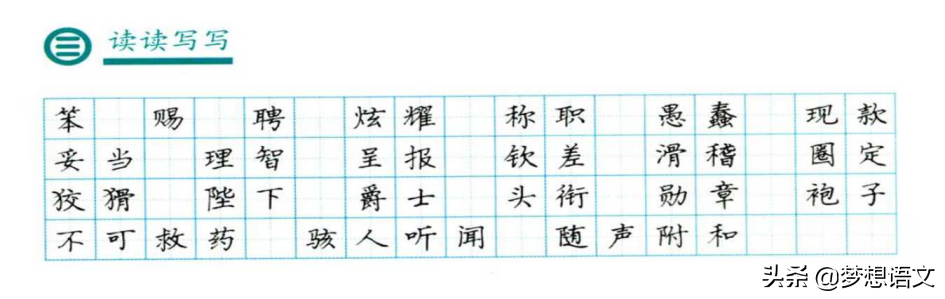 三 读读写写
笨 赐 聘 炫耀 称职 愚蠢 现款
妥当 理智 呈报 钦差 滑稽 圈定
狡猾 陛下 爵士 头衔 勋章 袍子
不可救药 骇人听闻 随声附和
头条 @梦想语文